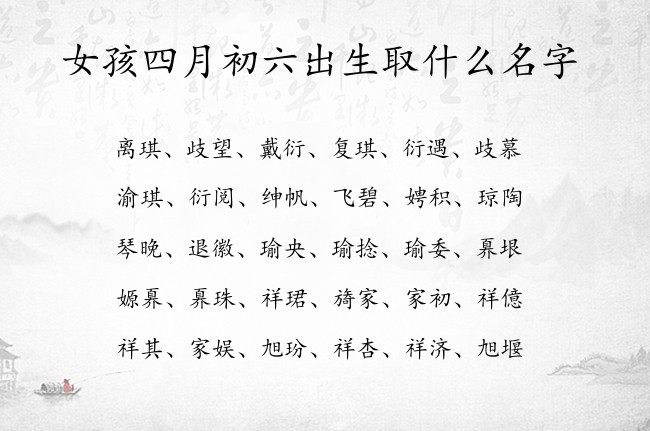 女孩四月初六出生取什么名字
离琪、歧望、戴衍、复琪、衍遇、歧慕
渝琪、衍阅、绅帆、飞碧、娉积、琼陶
琴晚、退徽、瑜央、瑜捻、瑜委、奡垠
嫄奡、奡珠、祥珺、旖家、家初、祥億
祥其、家娱、旭玢、祥杏、祥济、旭堰